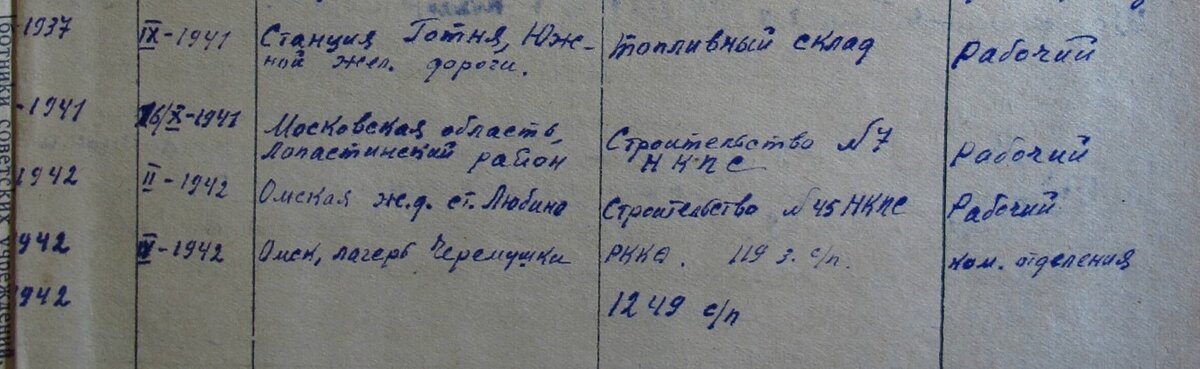 -1937 IX-1941 Станция Готня, Юж- Топливный склад Рабочий
ной жел. дороги.
-1941 16/X-1941 Московская область, Строительство №7 Рабочий
Лопастинский район НКПС
1942 II-1942 Омская ж.д. ст. Любино Строительство №45 НКПС Рабочий
942 IV-1942 Омск, лагерь Черемушки РККА. 119 з. с/п. ком. отделения
942 1249 с/п
ботники советских учреждений,